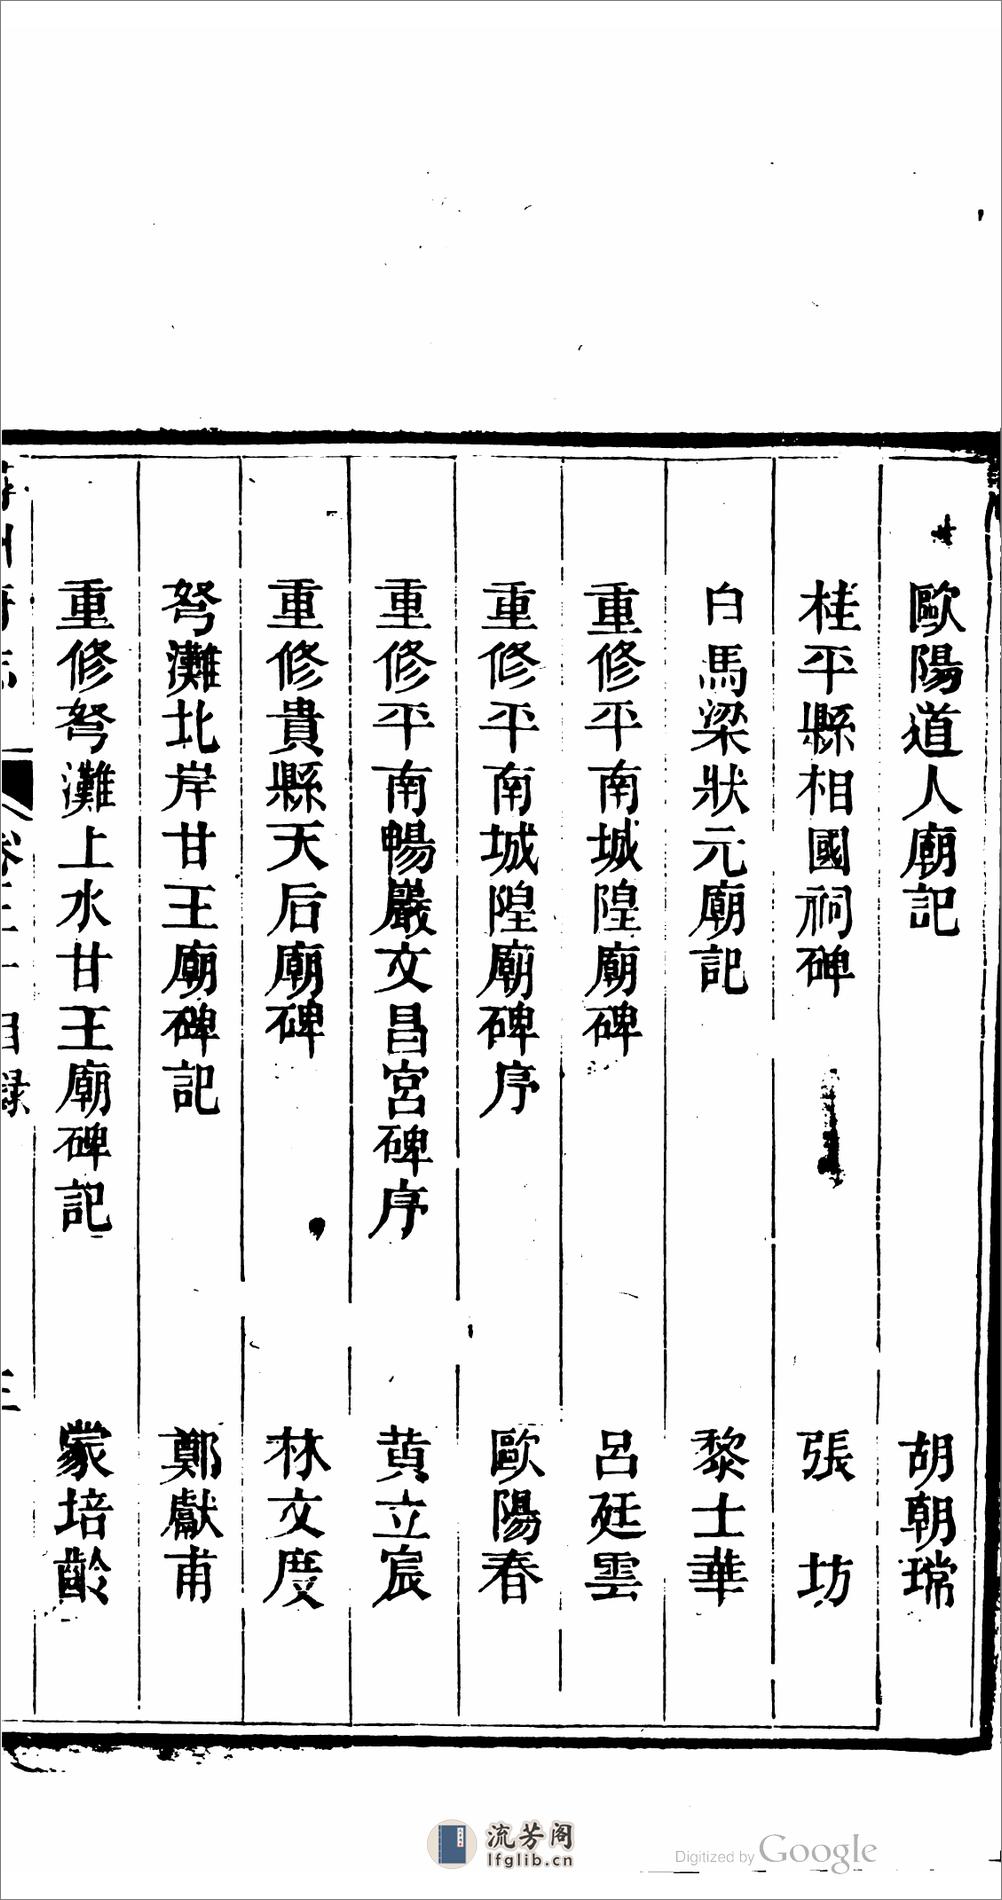 歐陽道人廟記 胡朝瑞
桂平縣相國祠碑 張坊
白馬梁狀元廟記 黎士華
重修平南城隍廟碑 呂廷雲
重修平南城隍廟碑序 歐陽春
重修平南暢巖文昌宮碑序 黃立宸
重修貴縣天后廟碑 林文度
弩灘北岸甘王廟碑記 鄭獻甫
重修弩灘上水甘王廟碑記 蒙培齡
目錄
三
流芳阁
lfglib.cn
Digitized by Google